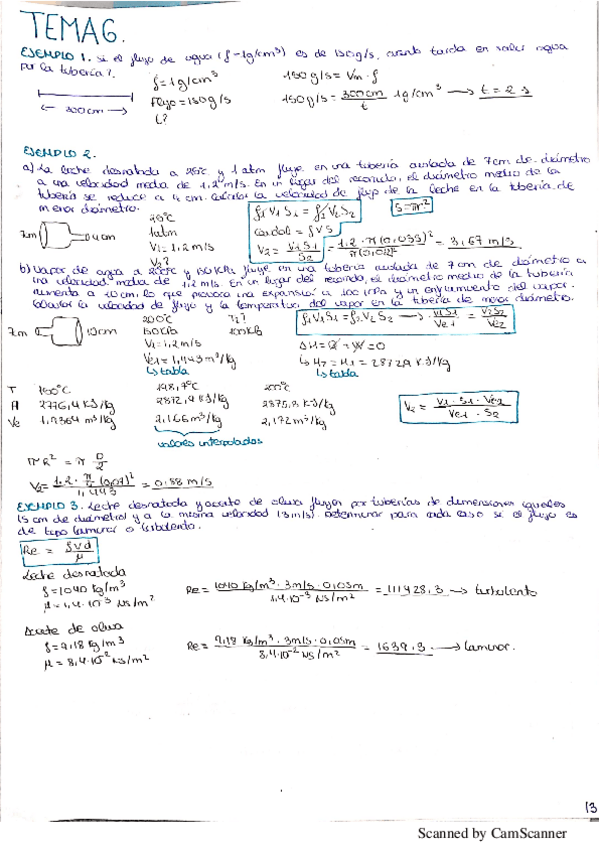 TEMA 6.
EJEMPLO 1. Si el flujo de agua (ρ=1g/cm³) es de 150g/s, cuánto tarda en salir agua
por la tubería?.
ρ=1g/cm³ 150g/s = Vm·ρ
Flujo=150g/s 150g/s = 300cm/t 1g/cm³ → t = 2 s
300cm t?
EJEMPLO 2.
a) La leche desnatada a 25ºC y 1 atm fluye en una tubería aislada de 7cm de diámetro
a una velocidad media de 1,2 m/s. En un lugar del recorrido, el diámetro medio de la
tubería se reduce a 4 cm. Calcular la velocidad de flujo de la leche en la tubería de
menor diámetro.
ρ1 V1 S1 = ρ2 V2 S2 S=πr²
7cm 4cm 1atm caudal = ρVS
V1=1,2 m/s V2 = V1 S1/S2 = 1,2·π(0,035)²/π(0,02)² = 3,67 m/s
V2?
b) Vapor de agua a 200ºC y 150 KPa fluye en una tubería aislada de 7 cm de diámetro a
una velocidad media de 1,2 m/s. En un lugar del recorrido, el diámetro medio de la tubería
aumenta a 10 cm lo que provoca una expansión a 100 KPa y un enfriamiento del vapor.
Calcular la velocidad de flujo y la temperatura del vapor en la tubería de mayor diámetro.
200ºC T2? ρ1V1S1=ρ2V2S2 → V1S1/Ve1 = V2S2/Ve2
7cm 10cm 150KPa 100KPa
V1=1,2m/s ΔH=Q+W=0
Ve1=1,443 m³/Kg ↳ H2 = H1 = 2872,9 KJ/Kg
↳tabla ↳tabla
T 150ºC 198,7ºC 200ºC
H 2776,4 KJ/Kg 2872,9 KJ/Kg 2875,3 KJ/Kg V2 = V1·S1·Ve2/Ve1·S2
Ve 1,9364 m³/Kg 2,166 m³/Kg 2,172 m³/Kg
valores interpolados
πR² = π D/2
V2= = 0,88 m/s
EJEMPLO 3. Leche desnatada y aceite de oliva fluyen por tuberías de dimensiones iguales
(5 cm de diámetro) y a la misma velocidad (3m/s). Determinar para cada caso si el flujo es
de tipo laminar o turbulento.
Re = ρvd/μ
Leche desnatada
ρ=1040 Kg/m³ Re = 1040 Kg/m³·3m/s·0,05m/1,4·10⁻³ Ns/m² = 111428,3 → turbulento
μ=1,4·10⁻³ Ns/m²
Aceite de oliva
ρ=9,18 Kg/m³ Re= 9,18 Kg/m³·3m/s·0,05m/8,4·10⁻² Ns/m² = 1639,3 → laminar.
μ = 8,4·10⁻² Ns/m²
13
Scanned by CamScanner